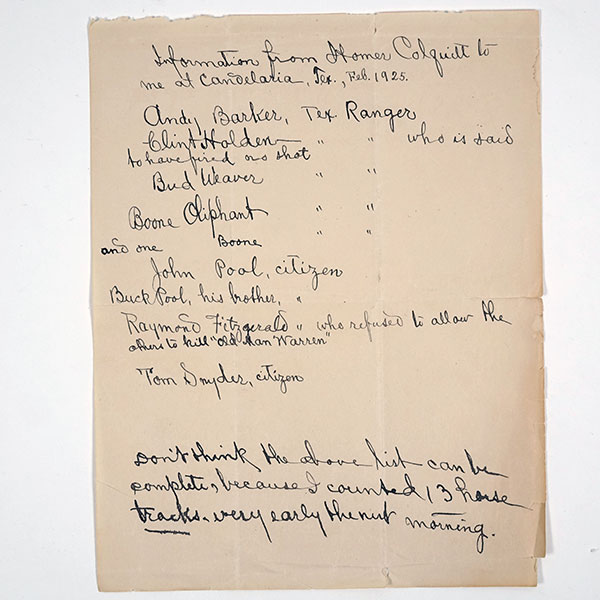 Information from Homer Colquitt to
me at Candelaria, Tex., Feb. 1925.
Andy Barker, Tex Ranger
Clint Holden " " who is said
to have fired no shot
Bud Weaver " "
Boone Oliphant " "
and one Boone " "
John Pool, citizen
Buck Pool, his brother, "
Raymond Fitzgerald " who refused to allow the
others to kill "old man Warren"
Tom Snyder, citizen
Don't think the above list can be
complete, because I counted 13 horse
tracks very early the next morning.